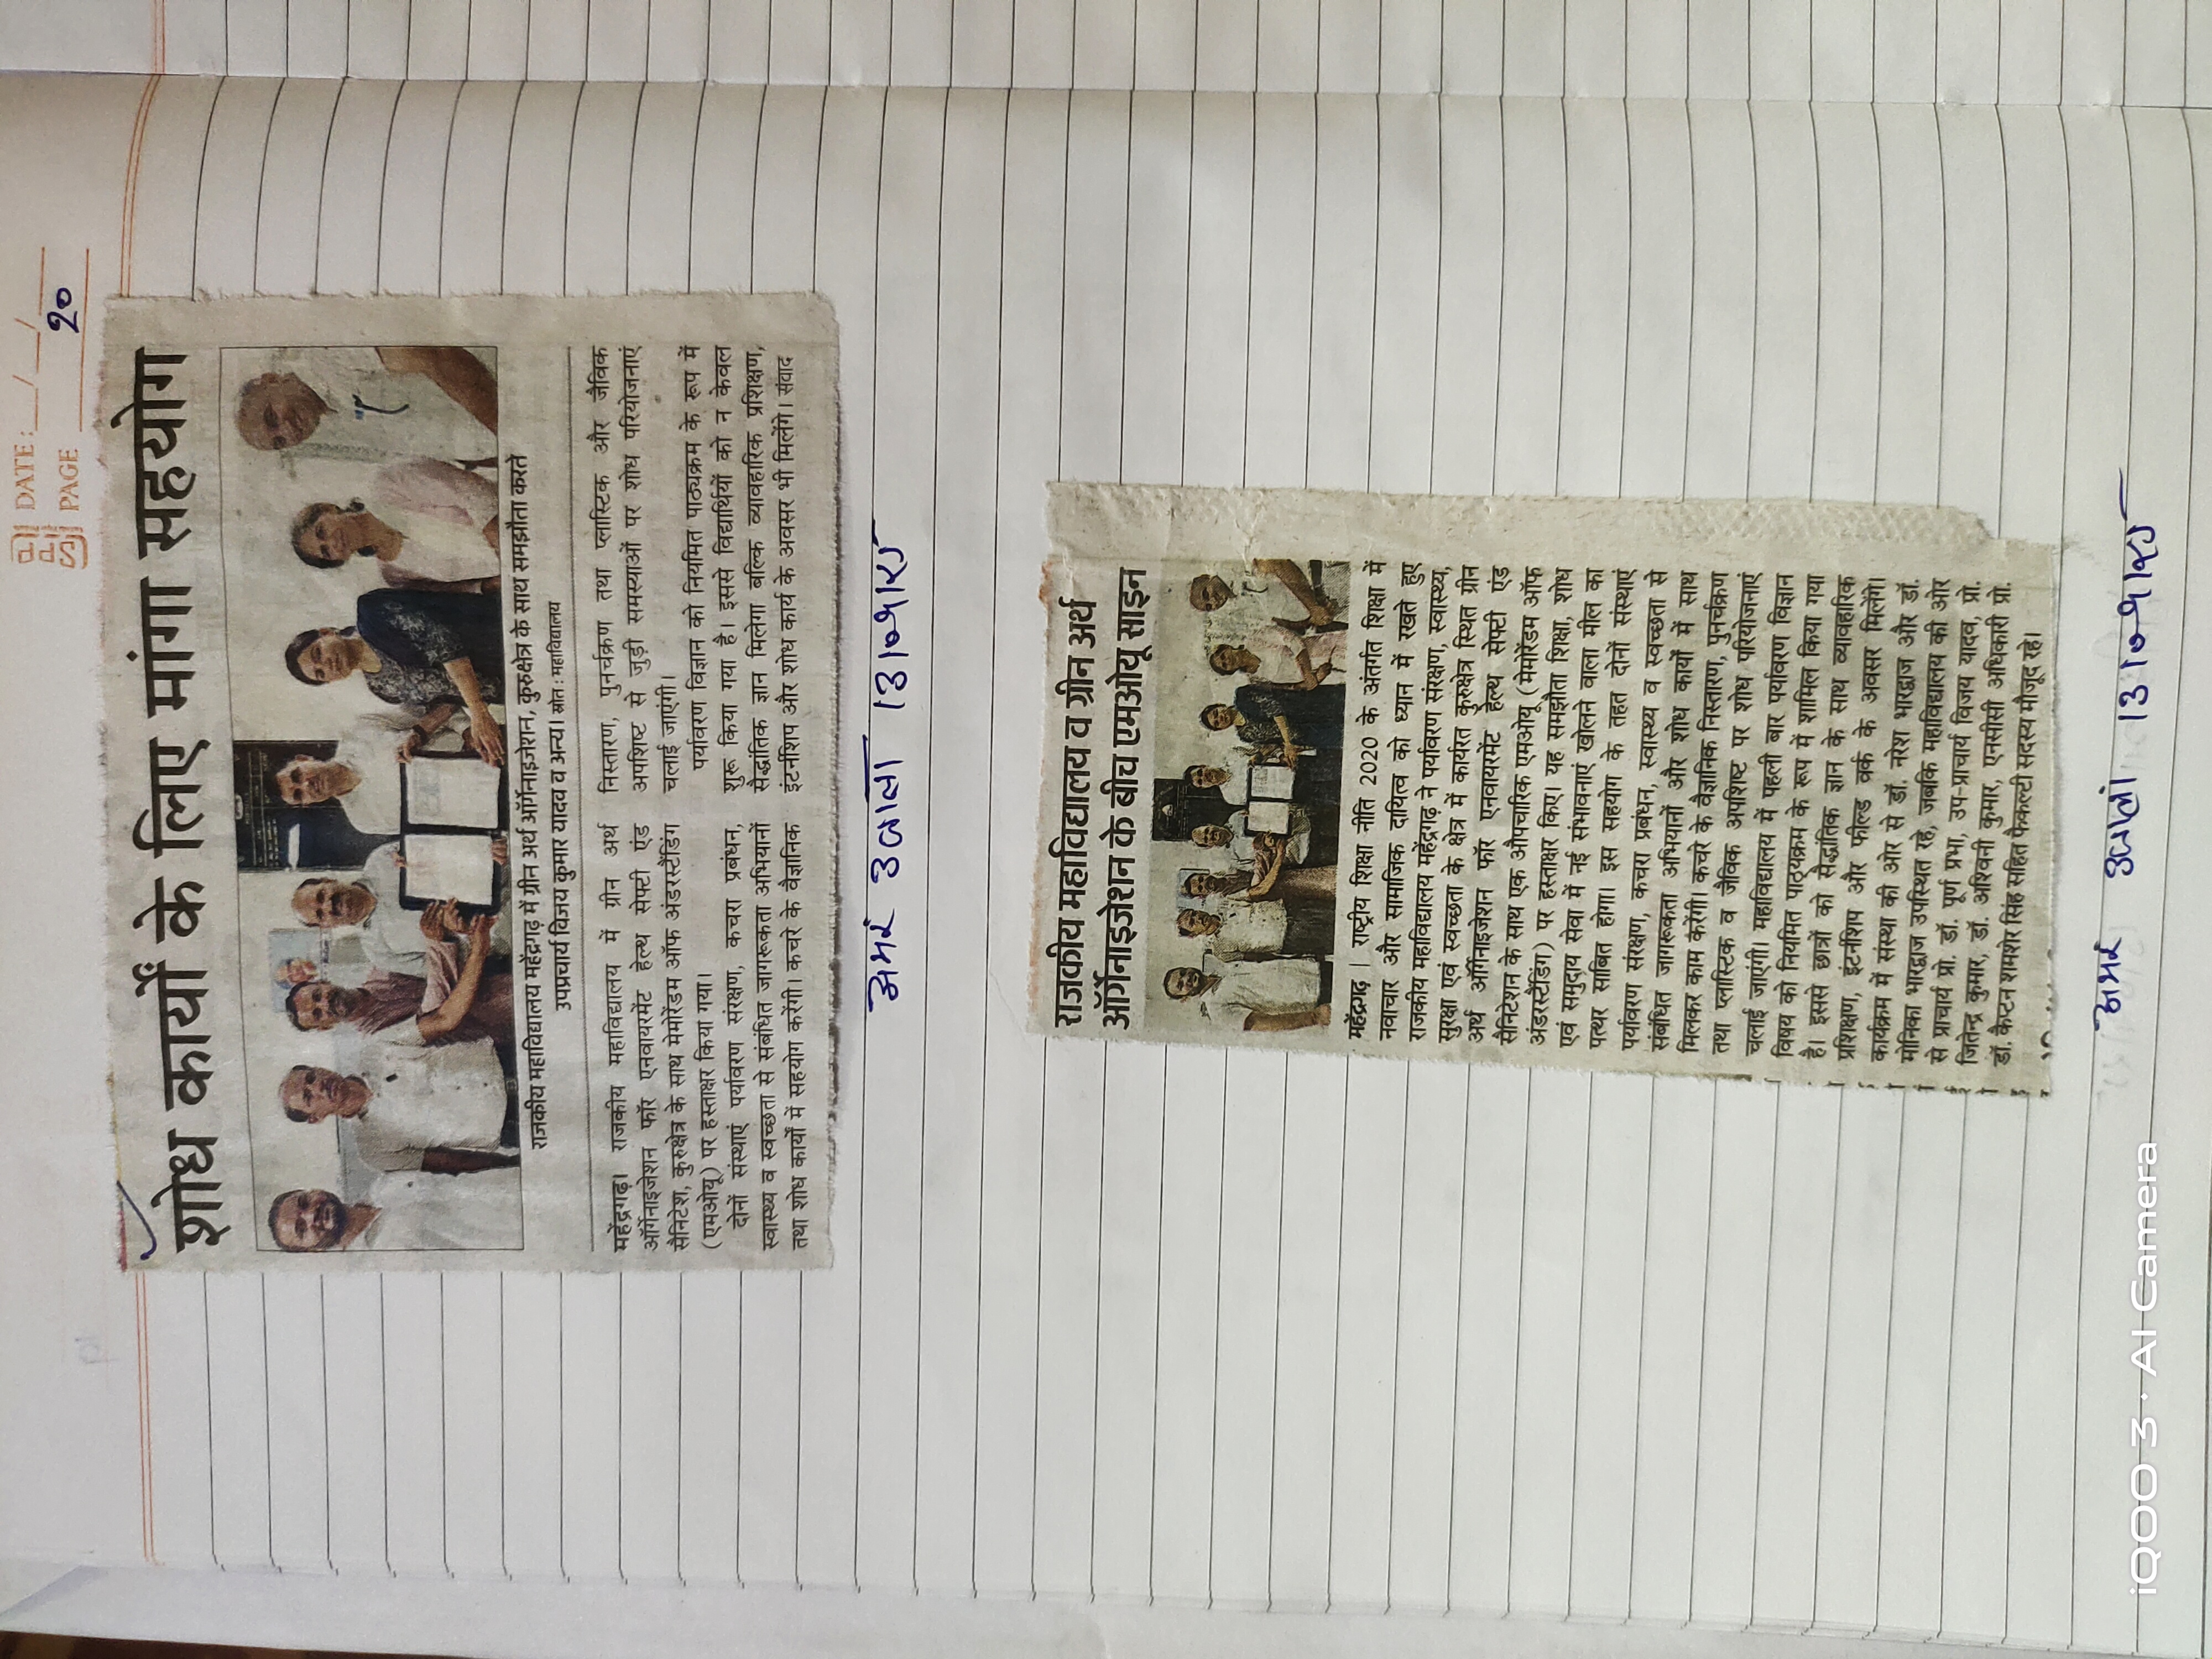 DATE: __/__/__
PAGE 20
शोध कार्यों के लिए मांगा सहयोग
राजकीय महाविद्यालय महेंद्रगढ़ में ग्रीन अर्थ ऑर्गेनाइजेशन, कुरुक्षेत्र के साथ समझौता करते
उपप्रचार्य विजय कुमार यादव व अन्य। स्रोत : महाविद्यालय
महेंद्रगढ़। राजकीय महाविद्यालय में ग्रीन अर्थ
ऑर्गेनाइजेशन फॉर एनवायरमेंट हेल्थ सेफ्टी एंड
सैनिटेश, कुरुक्षेत्र के साथ मेमोरेंडम ऑफ अंडरस्टैंडिंग
(एमओयू) पर हस्ताक्षर किया गया।
दोनों संस्थाएं पर्यावरण संरक्षण, कचरा प्रबंधन,
स्वास्थ्य व स्वच्छता से संबंधित जागरूकता अभियानों
तथा शोध कार्यों में सहयोग करेंगी। कचरे के वैज्ञानिक
निस्तारण, पुनर्चक्रण तथा प्लास्टिक और जैविक
अपशिष्ट से जुड़ी समस्याओं पर शोध परियोजनाएं
चलाई जाएंगी।
पर्यावरण विज्ञान को नियमित पाठ्यक्रम के रूप में
शुरू किया गया है। इससे विद्यार्थियों को न केवल
सैद्धांतिक ज्ञान मिलेगा बल्कि व्यावहारिक प्रशिक्षण,
इंटर्नशिप और शोध कार्य के अवसर भी मिलेंगे। संवाद
अमर उजाला 13।०९।२५
राजकीय महाविद्यालय व ग्रीन अर्थ
ऑर्गेनाइजेशन के बीच एमओयू साइन
महेंद्रगढ़ | राष्ट्रीय शिक्षा नीति 2020 के अंतर्गत शिक्षा में
नवाचार और सामाजिक दायित्व को ध्यान में रखते हुए
राजकीय महाविद्यालय महेंद्रगढ़ ने पर्यावरण संरक्षण, स्वास्थ्य,
सुरक्षा एवं स्वच्छता के क्षेत्र में कार्यरत कुरुक्षेत्र स्थित ग्रीन
अर्थ ऑर्गेनाइजेशन फॉर एनवायरमेंट हेल्थ सेफ्टी एंड
सैनिटेशन के साथ एक औपचारिक एमओयू (मेमोरेंडम ऑफ
अंडरस्टैंडिंग) पर हस्ताक्षर किए। यह समझौता शिक्षा, शोध
एवं समुदाय सेवा में नई संभावनाएं खोलने वाला मील का
पत्थर साबित होगा। इस सहयोग के तहत दोनों संस्थाएं
पर्यावरण संरक्षण, कचरा प्रबंधन, स्वास्थ्य व स्वच्छता से
संबंधित जागरूकता अभियानों और शोध कार्यों में साथ
मिलकर काम करेंगी। कचरे के वैज्ञानिक निस्तारण, पुनर्चक्रण
तथा प्लास्टिक व जैविक अपशिष्ट पर शोध परियोजनाएं
चलाई जाएंगी। महाविद्यालय में पहली बार पर्यावरण विज्ञान
विषय को नियमित पाठ्यक्रम के रूप में शामिल किया गया
है। इससे छात्रों को सैद्धांतिक ज्ञान के साथ व्यावहारिक
प्रशिक्षण, इंटर्नशिप और फील्ड वर्क के अवसर मिलेंगे।
कार्यक्रम में संस्था की ओर से डॉ. नरेश भारद्वाज और डॉ.
मोनिका भारद्वाज उपस्थित रहे, जबकि महाविद्यालय की ओर
से प्राचार्य प्रो. डॉ. पूर्ण प्रभा, उप-प्राचार्य विजय यादव, प्रो.
जितेन्द्र कुमार, डॉ. अश्विनी कुमार, एनसीसी अधिकारी प्रो.
डॉ. कैप्टन शमशेर सिंह सहित फैकल्टी सदस्य मौजूद रहे।
अमर उजाला 13।०९।२५
iQOO 3 · AI Camera